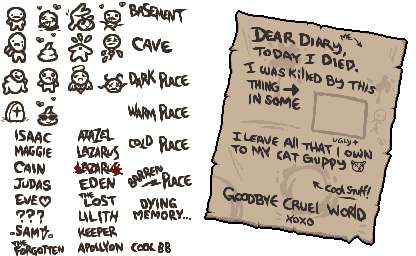 BASEMENT
CAVE
DARK PLACE
WARM PLACE
COLD PLACE
BARREN PLACE
DYING
MEMORY...
COOL BB
ISAAC
MAGGIE
CAIN
JUDAS
EVE♡
???
SAM
THE
FORGOTTEN
AZAZEL
LAZARUS
LAZARUS
EDEN
THE
LOST
LILITH
KEEPER
APOLLYON
DEAR DIARY,
ME
TODAY I DIED.
I WAS KILLED BY THIS
THING →
IN SOME
UGLY↑
I LEAVE ALL THAT I OWN
TO MY CAT GUPPY
COOL STUFF!
GOODBYE CRUEL WORLD
XOXO